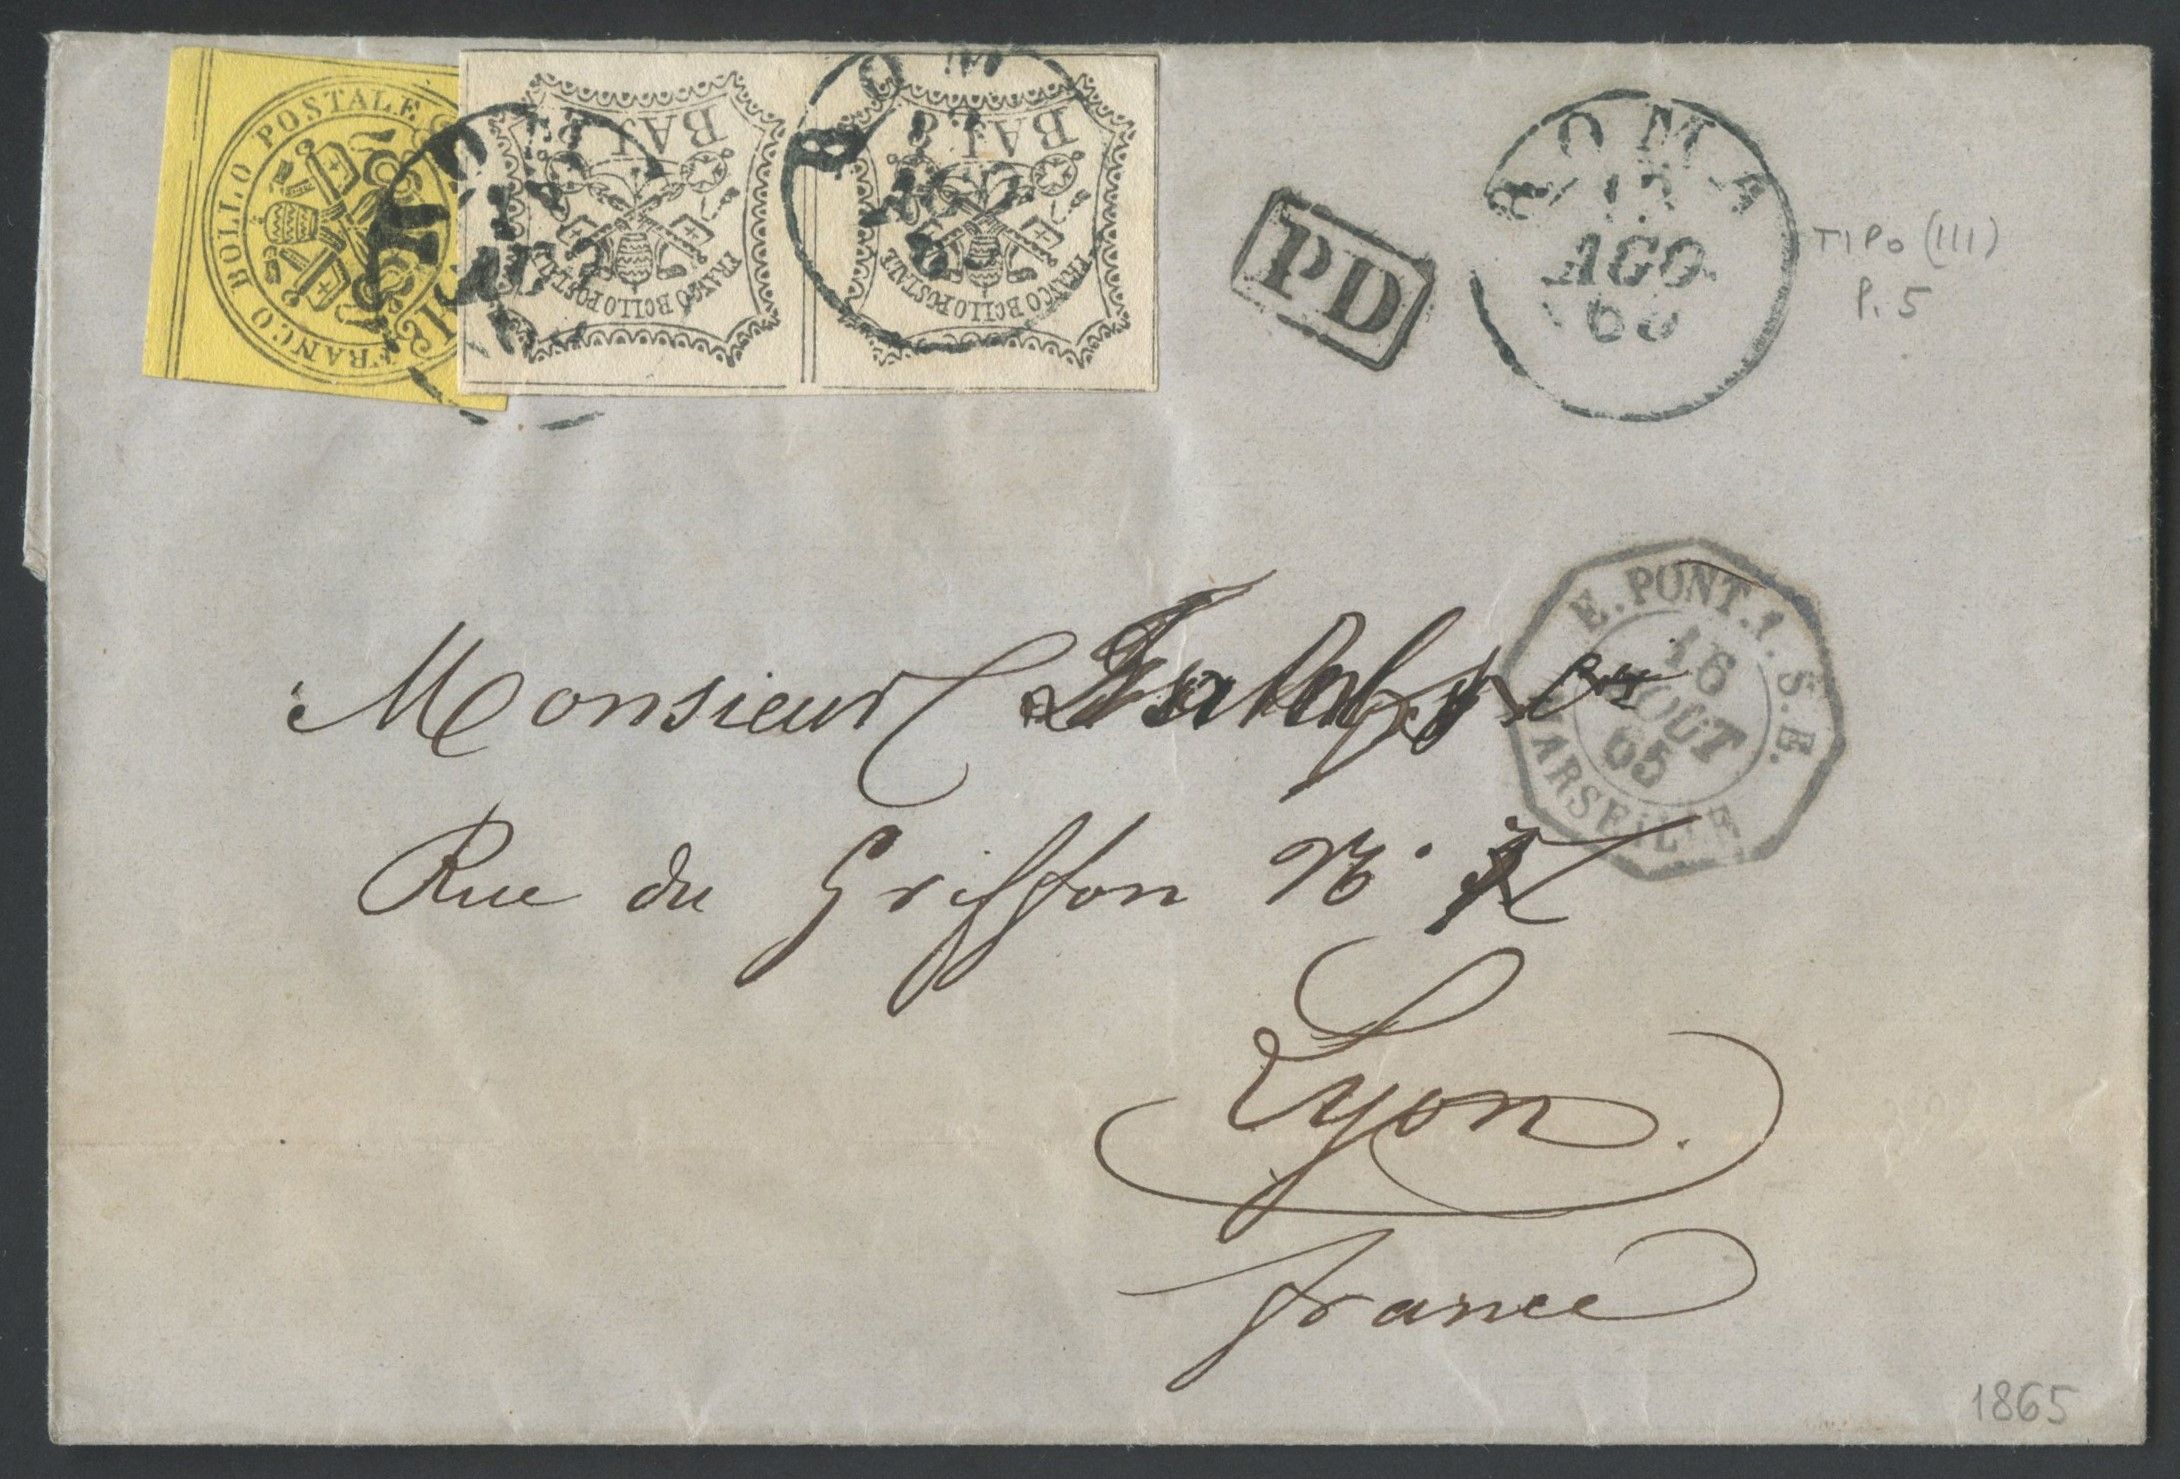 FRANCO BOLLO POSTALE
BAJ. 8
FRANCO BOLLO POSTALE
BAJ. 8
FRANCO BOLLO POSTALE
ROMA
PD
ROMA
AGO
TIPO (III)
P. 5
E. PONT. 1. S. E.
16
AOUT
65
MARSEILLE
Monsieur
Rue du Griffon N°
Lyon.
france
1865